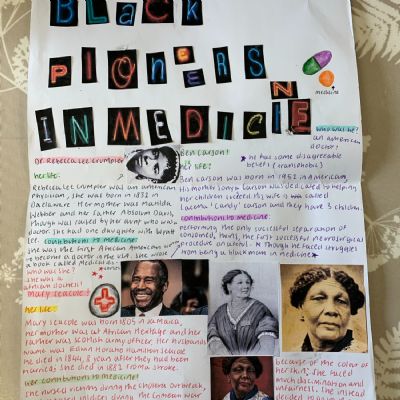 Black
PIONEERS
IN MEDICINE
medicine
Dr Rebecca Lee Crumpler
her life:
Rebecca Lee Crumpler was an american
physician, she was born in 1831 in
Delaware. Her mother was Matilda
Webber and her father Absolum Davis,
though was raised by her aunt who was a
She had one daughter with
Lee. contributions to medicine:
she was the first African American women
to become a doctor in the USA. She wrote
a book called Medical
who was she?
she was a
african
Mary Seacole!
her life:
Mary Seacole was born 1805 in Jamaica,
her mother was of African Heritage and her
father was scottish army officer. Her husbands
name was Edwin Horatio Hamilton Seacole
He died in 1844, 8 years after they had been
married, she died in 1881 from a stroke.
her contributions to medicine!
She nursed victims during the cholera outbreak,
soldiers during the Crimean war
Ben Carson!
his life?
who was he?
an american
doctor!
he has some disagreeable
beliefs (transphobic)
Ben Carson was born in 1951 in America,
His mother Sonya Carson was dedicated to helping
her children succeed. His wife is called
Lacena 'Candy' Carson and they have 3 children.
contributions to medicine:
performing the only successful separation of
conjoined twins, the first successful neurosurgical
procedure on a fetus. Though he faced struggles
from being a black man in medicine
because of the color of
her skin, she faced
much discrimination and
unfairness. She instead
decided to